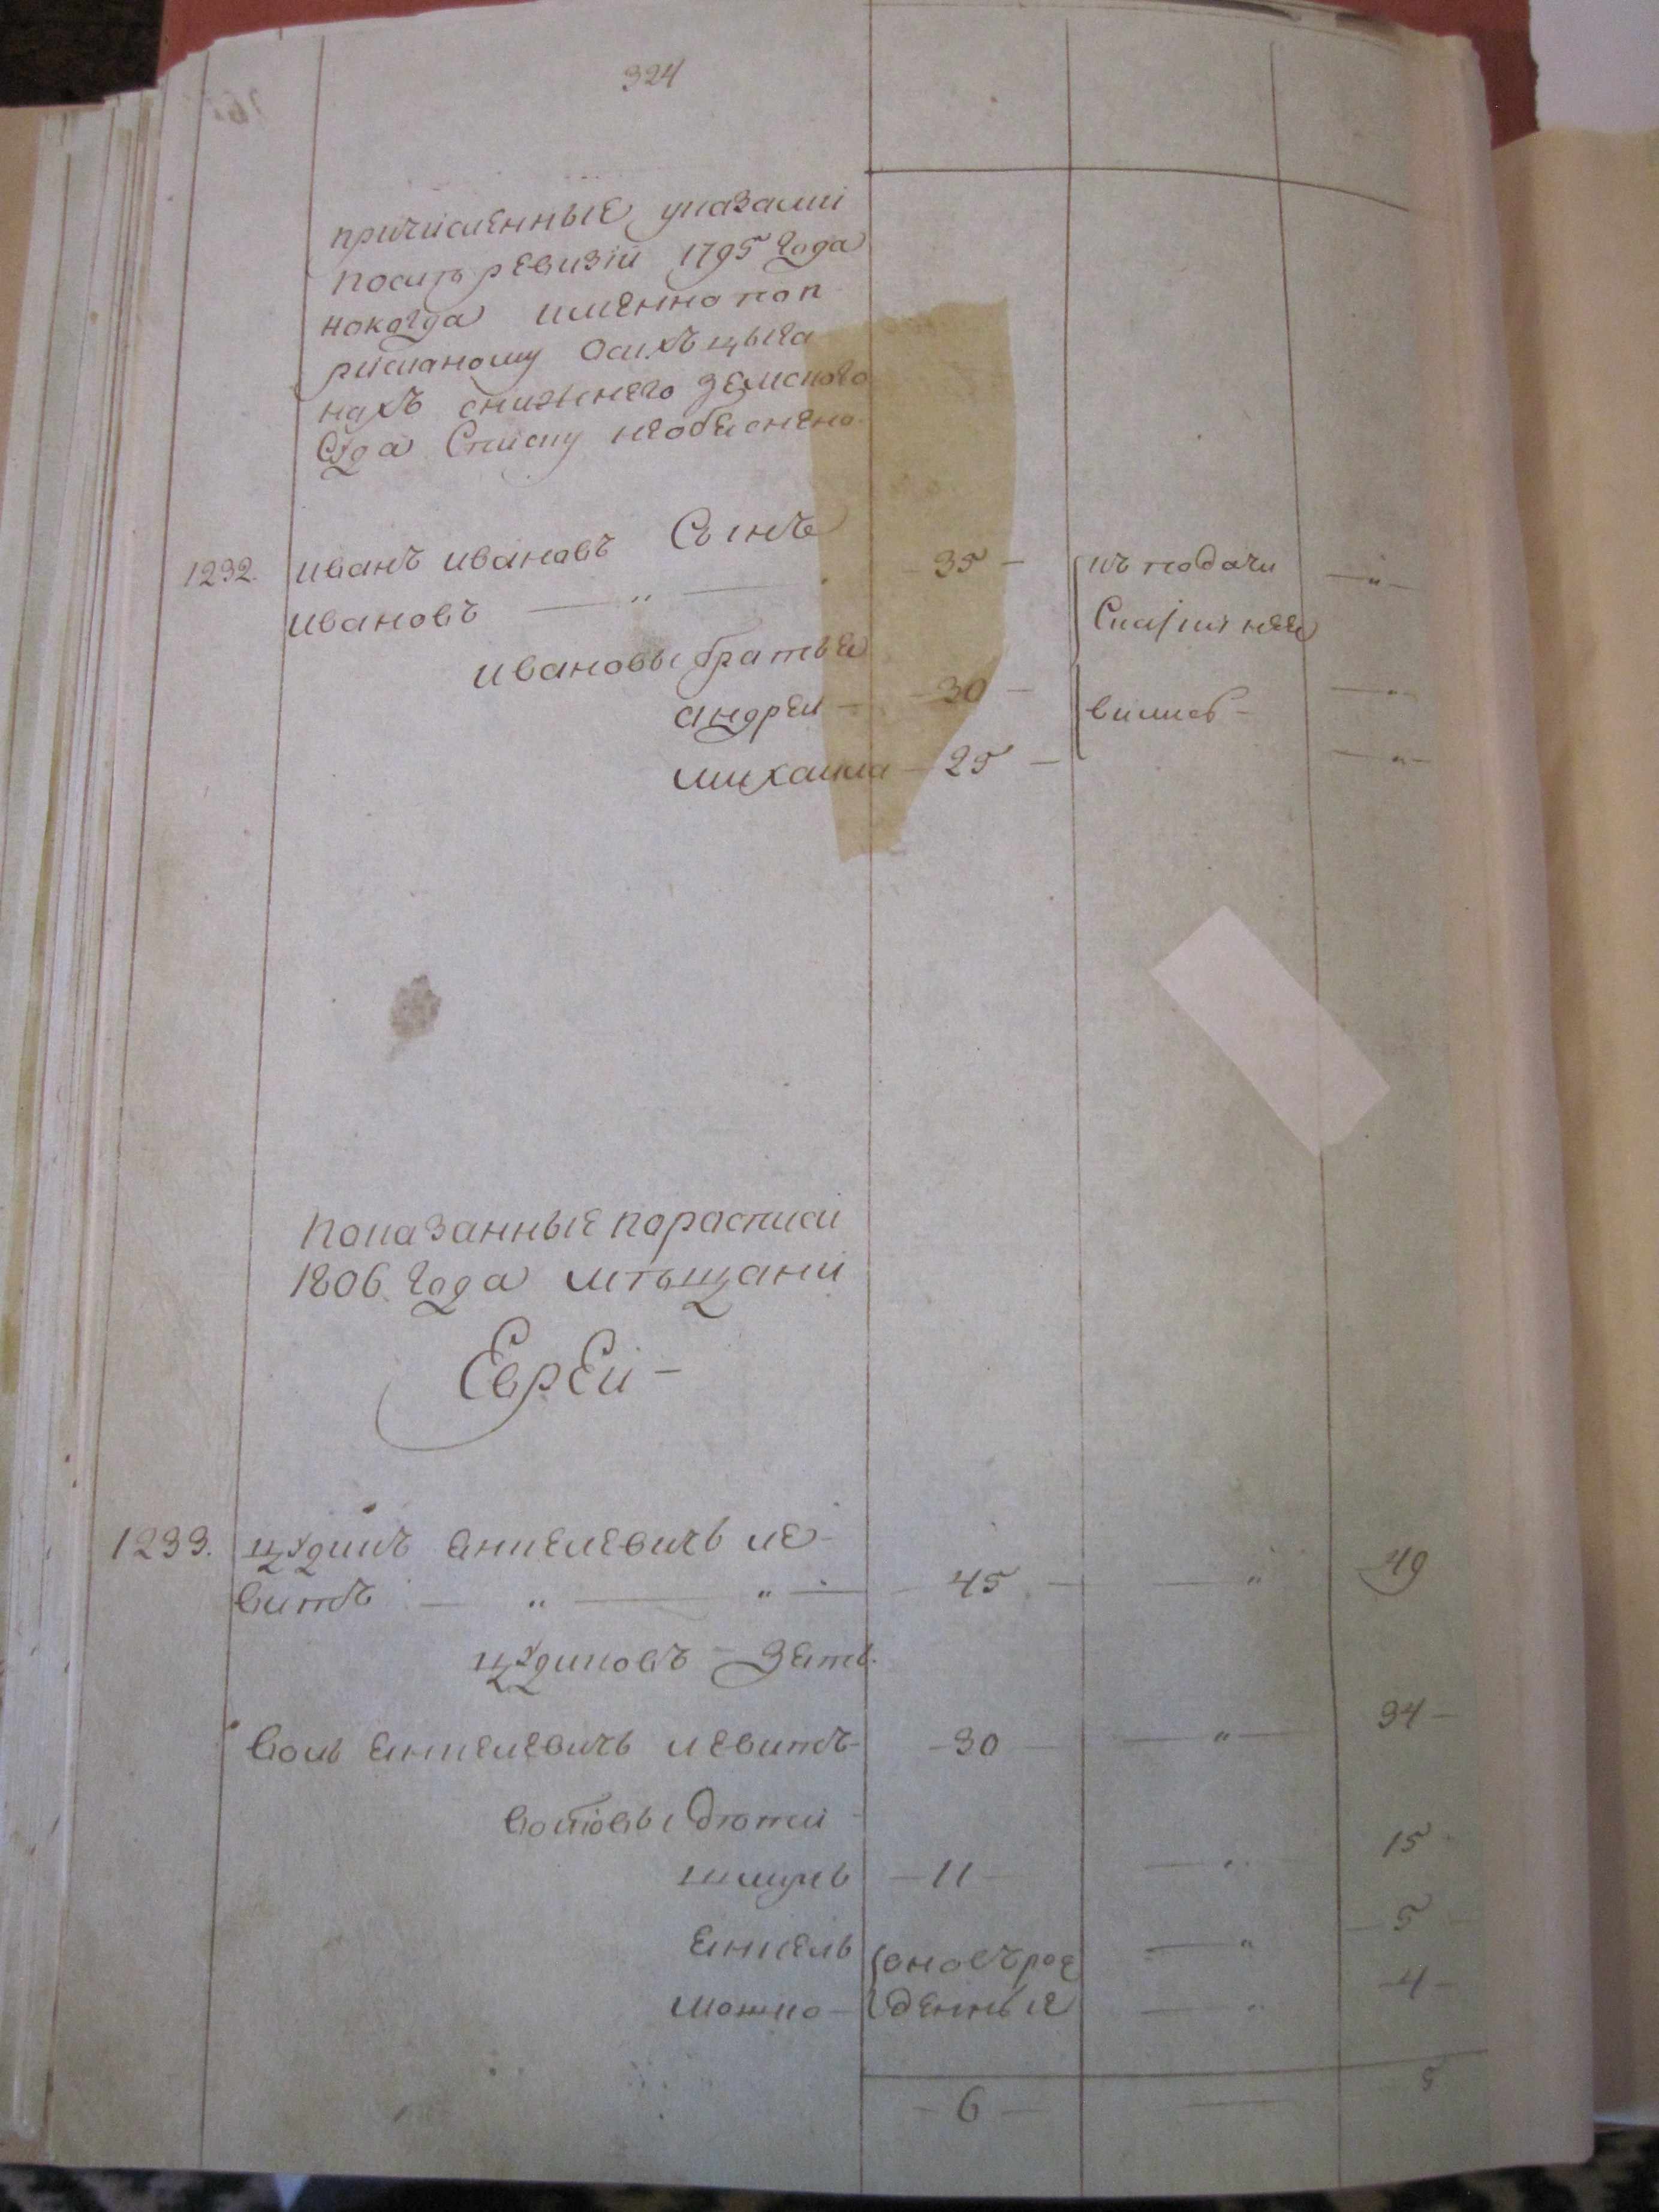 324
причисленные указами
после ревизіи 1795 года
нокогда именно по п
рисланому осихъ цыга
нахъ снижнего земского
Суда Списку необеснено.
1232. иванъ ивановъ Сынъ
ивановъ — „ — 35 — къ подачи — „ —
Сказки нее
ивановы братьея
андреи — 30 — вились — — „ —
михаила — 25 — — „ —
показанные порасписи
1806 года мѣщани
Евреи —
1233. цудикъ енкелевичъ ле-
витъ — „ — „ — 45 — — „ 49
цудиковъ зеть
волъ енкелевичъ левитъ — 30 — „ — 34 —
волфовы дѣти
шмуль — 11 — — „ 15
енкель оновърож — „ — 5 —
мошко — денные — „ — 4 —
— 6 — — 5